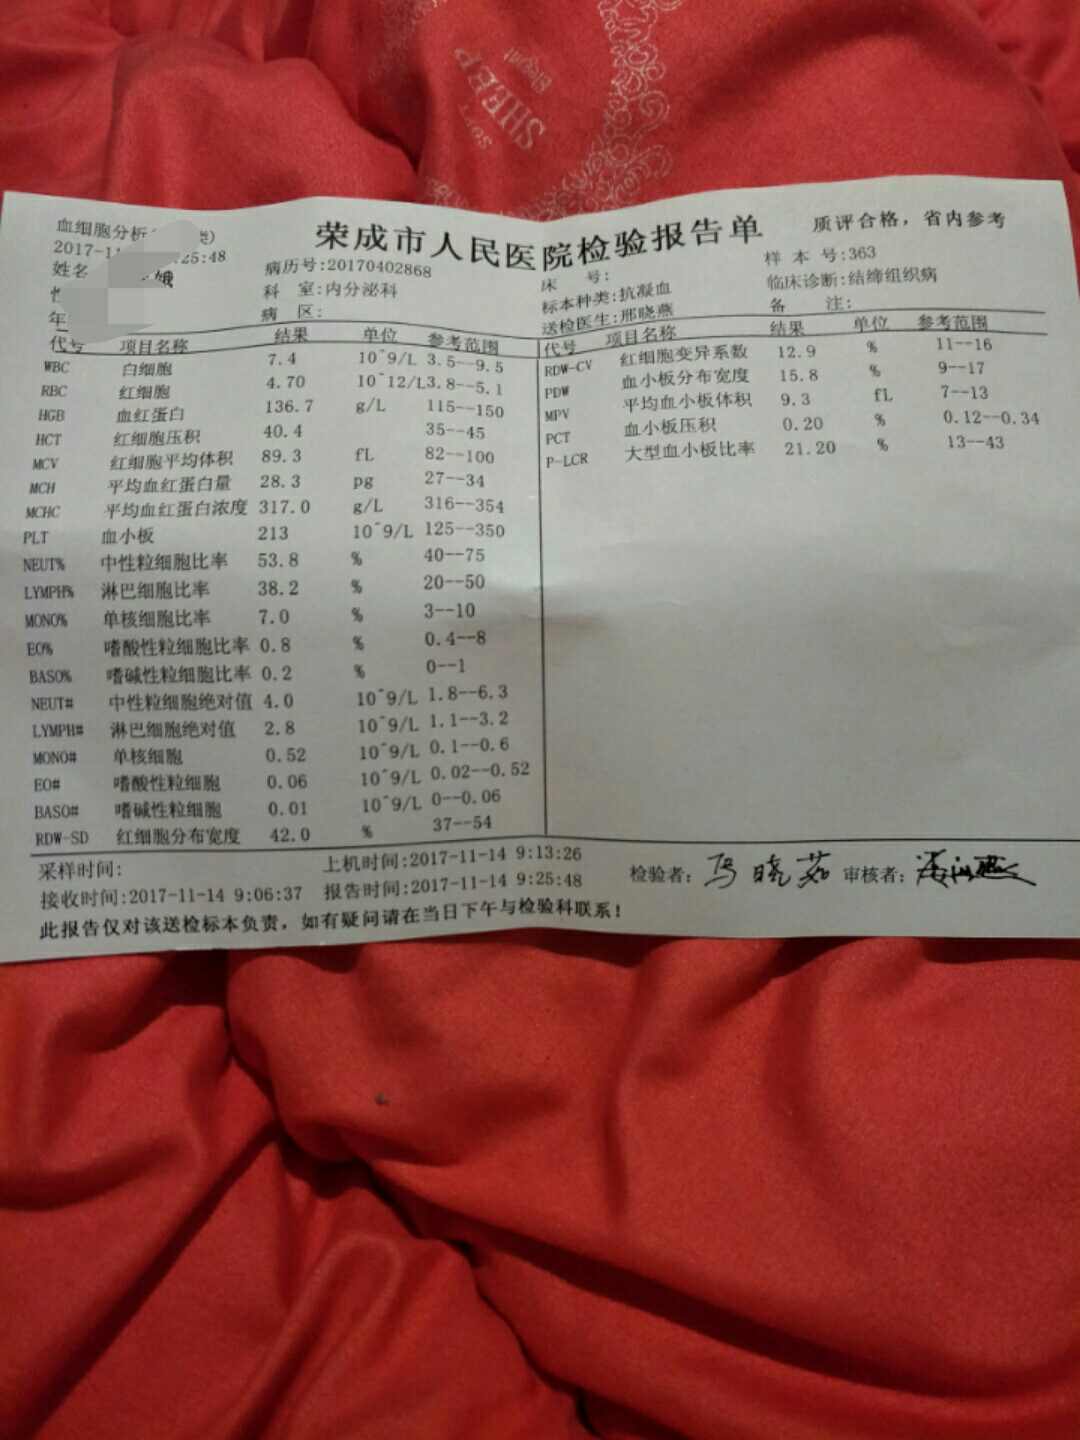 SOFT
SHEEP
Elegant
荣成市人民医院检验报告单
质评合格，省内参考
血细胞分析
2017-11 :25:48
姓名 娥
病历号:20170402868
床 号:
样 本 号:363
科 室:内分泌科
标本种类:抗凝血
临床诊断:结缔组织病
年
病 区:
送检医生:邢晓燕
备 注:
代号 项目名称 结果 单位 参考范围
WBC 白细胞 7.4 10^9/L 3.5--9.5
RBC 红细胞 4.70 10^12/L 3.8--5.1
HGB 血红蛋白 136.7 g/L 115--150
HCT 红细胞压积 40.4 35--45
MCV 红细胞平均体积 89.3 fL 82--100
MCH 平均血红蛋白量 28.3 pg 27--34
MCHC 平均血红蛋白浓度 317.0 g/L 316--354
PLT 血小板 213 10^9/L 125--350
NEUT% 中性粒细胞比率 53.8 % 40--75
LYMPH% 淋巴细胞比率 38.2 % 20--50
MONO% 单核细胞比率 7.0 % 3--10
EO% 嗜酸性粒细胞比率 0.8 % 0.4--8
BASO% 嗜碱性粒细胞比率 0.2 % 0--1
NEUT# 中性粒细胞绝对值 4.0 10^9/L 1.8--6.3
LYMPH# 淋巴细胞绝对值 2.8 10^9/L 1.1--3.2
MONO# 单核细胞 0.52 10^9/L 0.1--0.6
EO# 嗜酸性粒细胞 0.06 10^9/L 0.02--0.52
BASO# 嗜碱性粒细胞 0.01 10^9/L 0--0.06
RDW-SD 红细胞分布宽度 42.0 % 37--54
代号 项目名称 结果 单位 参考范围
RDW-CV 红细胞变异系数 12.9 % 11--16
PDW 血小板分布宽度 15.8 % 9--17
MPV 平均血小板体积 9.3 fL 7--13
PCT 血小板压积 0.20 % 0.12--0.34
P-LCR 大型血小板比率 21.20 % 13--43
采样时间:
上机时间:2017-11-14 9:13:26
检验者: 马晓茹 审核者:
接收时间:2017-11-14 9:06:37
报告时间:2017-11-14 9:25:48
此报告仅对该送检标本负责，如有疑问请在当日下午与检验科联系!